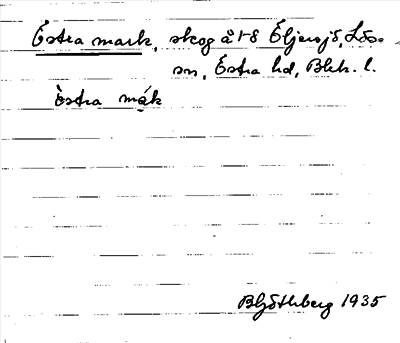 Östra mark, skog å 1-8 Öljersjö, Lös-
sn, Östra hd, Blek. l.
östra mák
BLjöthberg 1935